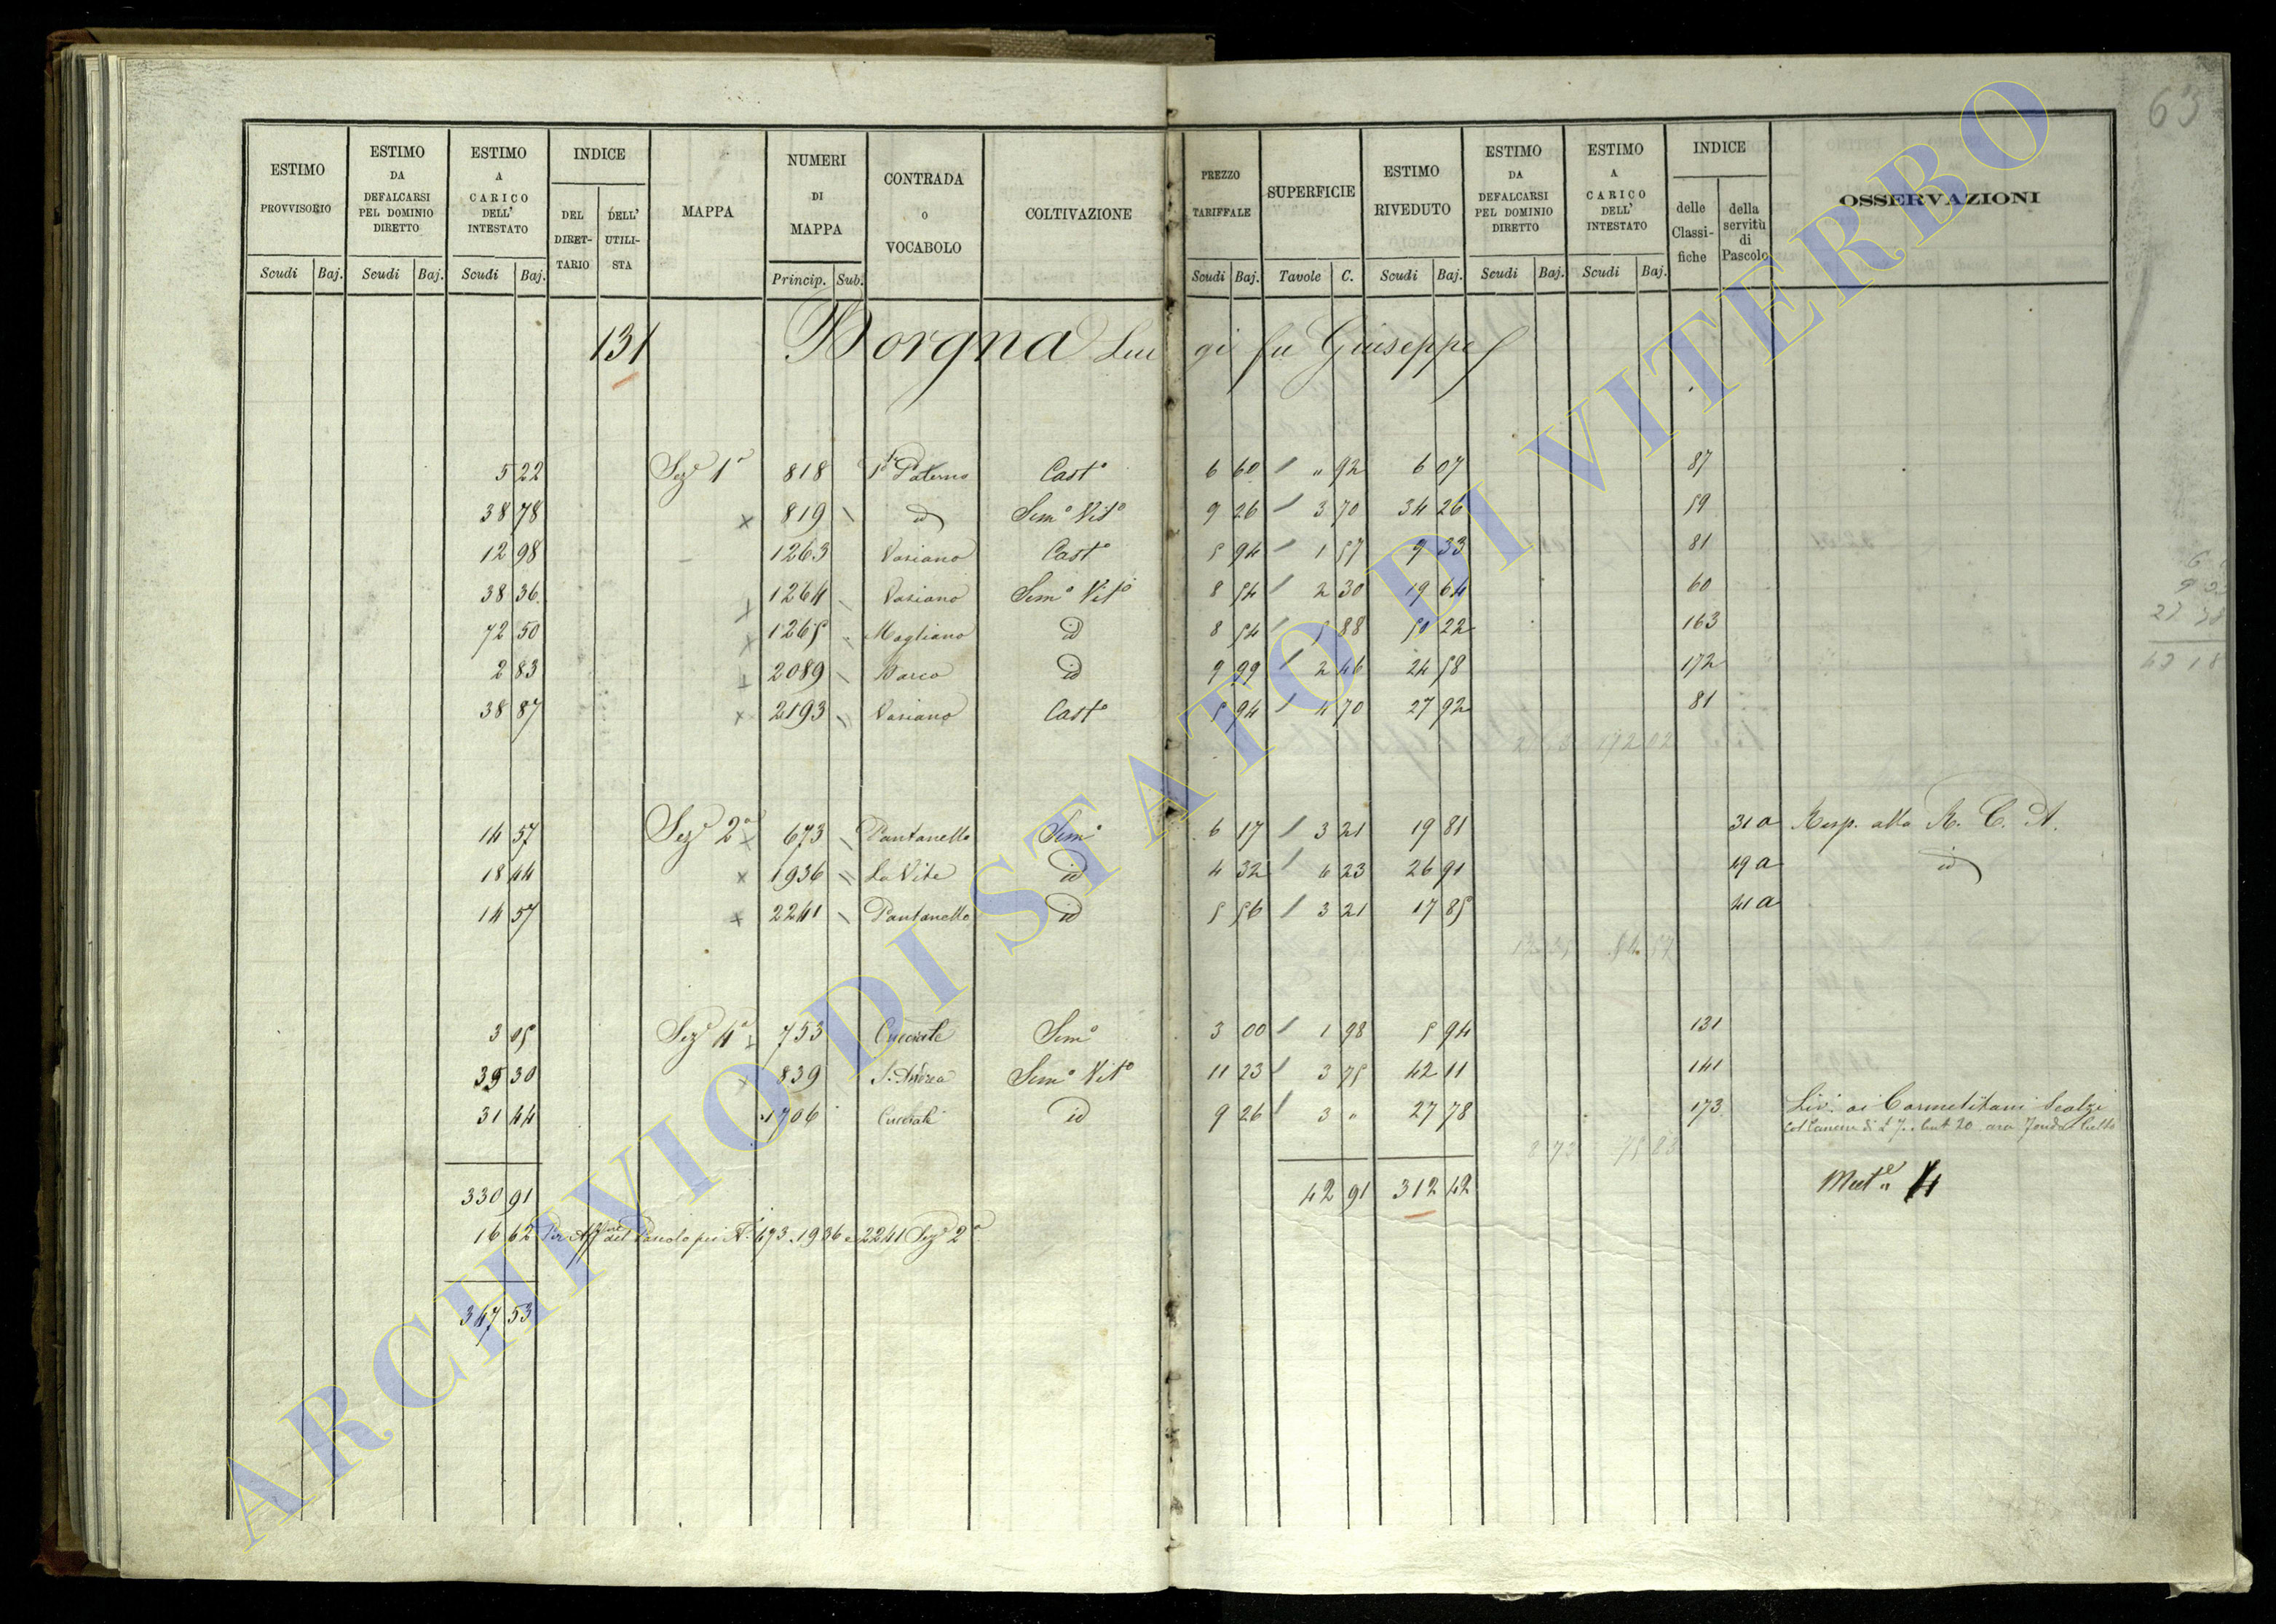 63
ESTIMO PROVVISORIO
ESTIMO DA DEFALCARSI PEL DOMINIO DIRETTO
ESTIMO A CARICO DELL' INTESTATO
INDICE
DEL DIRET- TARIO
DELL' UTILI- STA
MAPPA
NUMERI DI MAPPA
CONTRADA O VOCABOLO
COLTIVAZIONE
PREZZO TARIFFALE
SUPERFICIE
ESTIMO RIVEDUTO
ESTIMO DA DEFALCARSI PEL DOMINIO DIRETTO
ESTIMO A CARICO DELL' INTESTATO
INDICE
delle Classi- fiche
della servitù di Pascolo
OSSERVAZIONI
Scudi Baj. Scudi Baj. Scudi Baj. Princip. Sub. Scudi Baj. Tavole C. Scudi Baj. Scudi Baj. Scudi Baj.
131 Borgna Luigi fu Giuseppe
5 22 Sez.e 1a 818 Paterno Casto 6 60 " 92 6 07 87
38 78 x 819 id Semo Vito 9 26 3 70 34 26 59
12 98 1263 Vasiano Casto 5 94 1 57 9 33 81
38 36 x 1264 Vasiano Semo Vito 8 54 2 30 19 64 60
72 50 x 1265 Magliano id 8 54 5 88 50 22 163
2 83 x 2089 Barco id 9 99 2 46 24 58 172
38 87 x 2193 Vasiano Casto 5 94 4 70 27 92 81
14 57 Sez.e 2a x 673 Pantanella Semo 6 17 3 21 19 81 31 a Resp. alla R. C. A.
18 44 x 1936 La Vite id 4 32 6 23 26 91 49 a id
14 57 x 2241 Pantanella id 5 56 3 21 17 85 41 a
3 05 Sez.e 4a x 753 Semo 3 00 1 98 5 94 131
39 30 x 839 S. Andrea Semo Vito 11 23 3 75 42 11 141
31 44 1706 id 9 26 3 " 27 78 173 Liv. ai Carmelitani Scalzi
20 ora
330 91 42 91 312 42 4
16 62 Per del Pascolo pei N. 673. 1936 e 2241 Sez.e 2a
347 53
ARCHIVIO DI STATO DI VITERBO